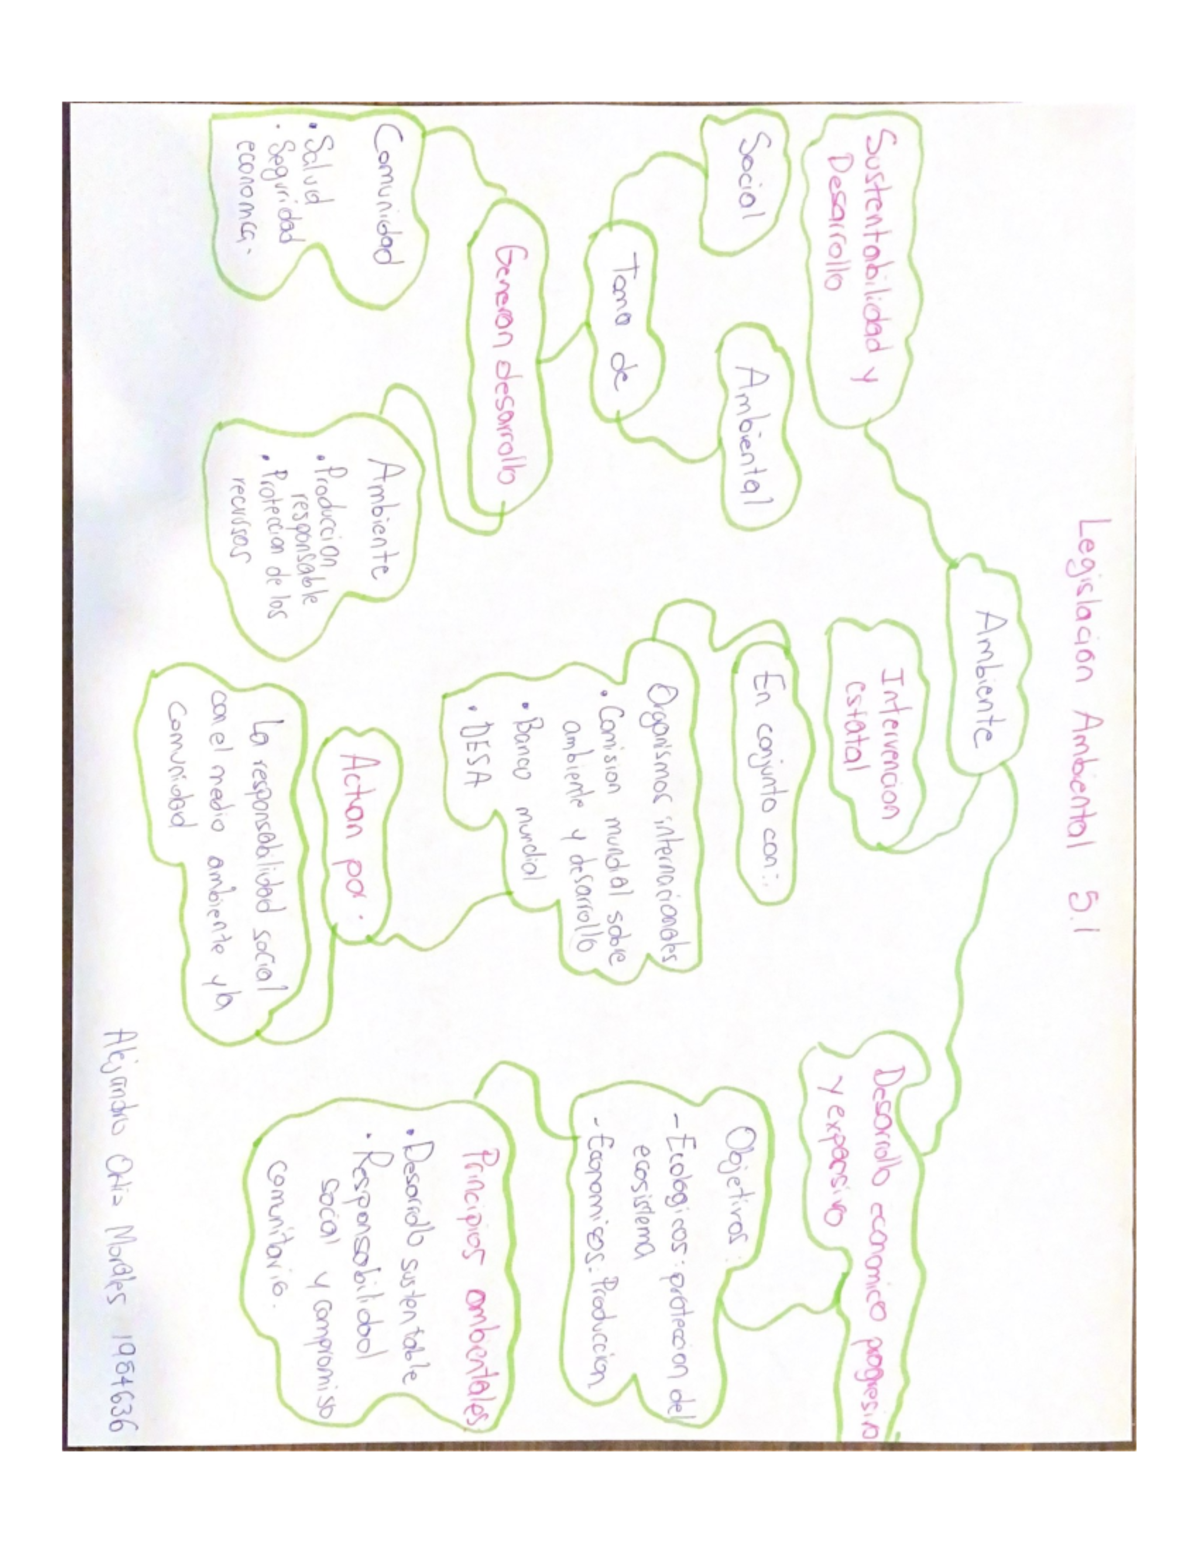 Legislación Ambiental 5.1
Ambiente
Sustentabilidad y
Desarrollo
Social
Ambiental
Toma de
Generan desarrollo
Comunidad
• Salud
• Seguridad
economca.
Ambiente
• Produccion
responsable
• Proteccion de los
recursos
Intervencion
estatal
En conjunto con:
Organismos internacionales
• Comision mundial sobre
ambiente y desarrollo
• Banco mundial
• DESA
Actuan por:
La responsabilidad social
con el medio ambiente y la
Comunidad
Desarrollo economico progresivo
y expansivo
Objetivos:
- Ecologicos: proteccion del
ecosistema
- Economicos: Produccion
Principios ambientales
• Desarrollo sustentable
• Responsabilidad
social y compromiso
comunitario.
Alejandro Ortiz Morales 1984636